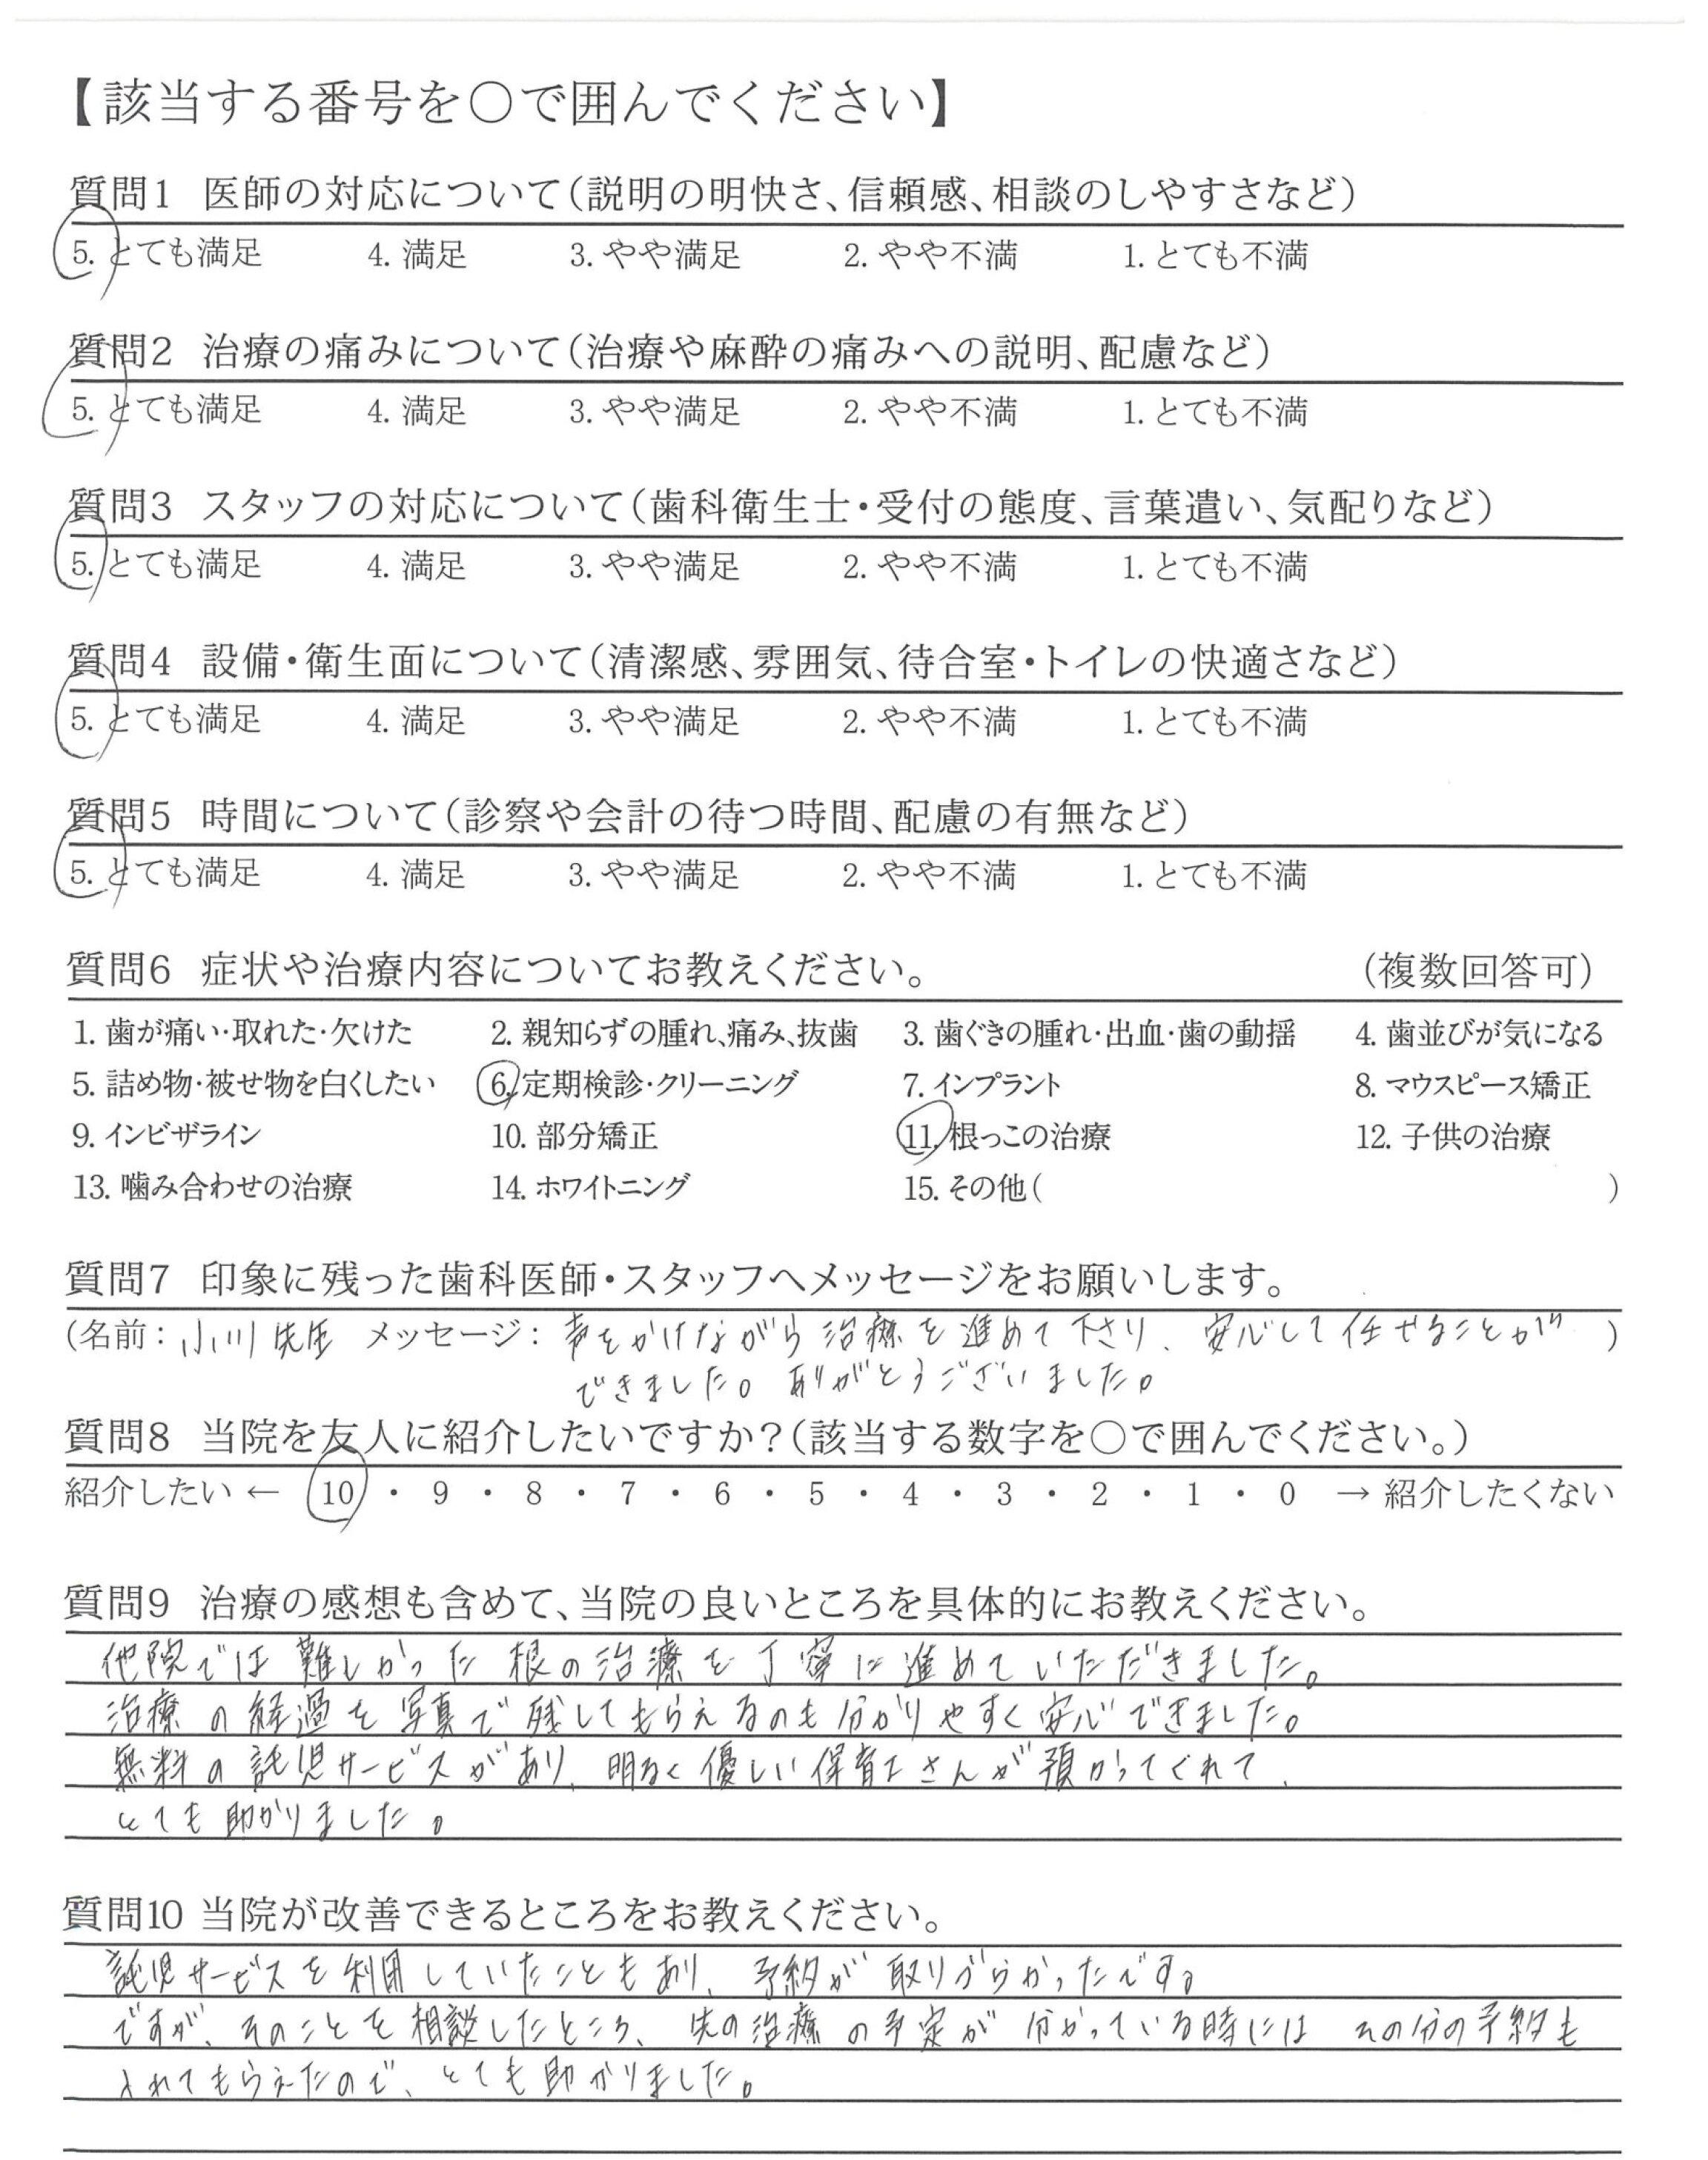 【該当する番号を○で囲んでください】
質問1 医師の対応について(説明の明快さ、信頼感、相談のしやすさなど)
5. とても満足 4. 満足 3. やや満足 2. やや不満 1. とても不満
質問2 治療の痛みについて(治療や麻酔の痛みへの説明、配慮など)
5. とても満足 4. 満足 3. やや満足 2. やや不満 1. とても不満
質問3 スタッフの対応について(歯科衛生士・受付の態度、言葉遣い、気配りなど)
5. とても満足 4. 満足 3. やや満足 2. やや不満 1. とても不満
質問4 設備・衛生面について(清潔感、雰囲気、待合室・トイレの快適さなど)
5. とても満足 4. 満足 3. やや満足 2. やや不満 1. とても不満
質問5 時間について(診察や会計の待つ時間、配慮の有無など)
5. とても満足 4. 満足 3. やや満足 2. やや不満 1. とても不満
質問6 症状や治療内容についてお教えください。 (複数回答可)
1. 歯が痛い・取れた・欠けた 2. 親知らずの腫れ、痛み、抜歯 3. 歯ぐきの腫れ・出血・歯の動揺 4. 歯並びが気になる
5. 詰め物・被せ物を白くしたい 6. 定期検診・クリーニング 7. インプラント 8. マウスピース矯正
9. インビザライン 10. 部分矯正 11. 根っこの治療 12. 子供の治療
13. 噛み合わせの治療 14. ホワイトニング 15. その他( )
質問7 印象に残った歯科医師・スタッフへメッセージをお願いします。
(名前: 小川先生 メッセージ: 声をかけながら治療を進めて下さり、安心して任せることが )
できました。ありがとうございました。
質問8 当院を友人に紹介したいですか?(該当する数字を○で囲んでください。)
紹介したい ← 10 ・ 9 ・ 8 ・ 7 ・ 6 ・ 5 ・ 4 ・ 3 ・ 2 ・ 1 ・ 0 → 紹介したくない
質問9 治療の感想も含めて、当院の良いところを具体的にお教えください。
他院では難しかった根の治療を丁寧に進めていただきました。
治療の経過を写真で残してもらえるのも分かりやすく安心できました。
無料の託児サービスがあり、明るく優しい保育士さんが預かってくれて、
とても助かりました。
質問10 当院が改善できるところをお教えください。
託児サービスを利用していたこともあり、予約が取りづらかったです。
ですが、そのことを相談したところ、先の治療の予定が分かっている時にはその分の予約も
入れてもらえたので、とても助かりました。